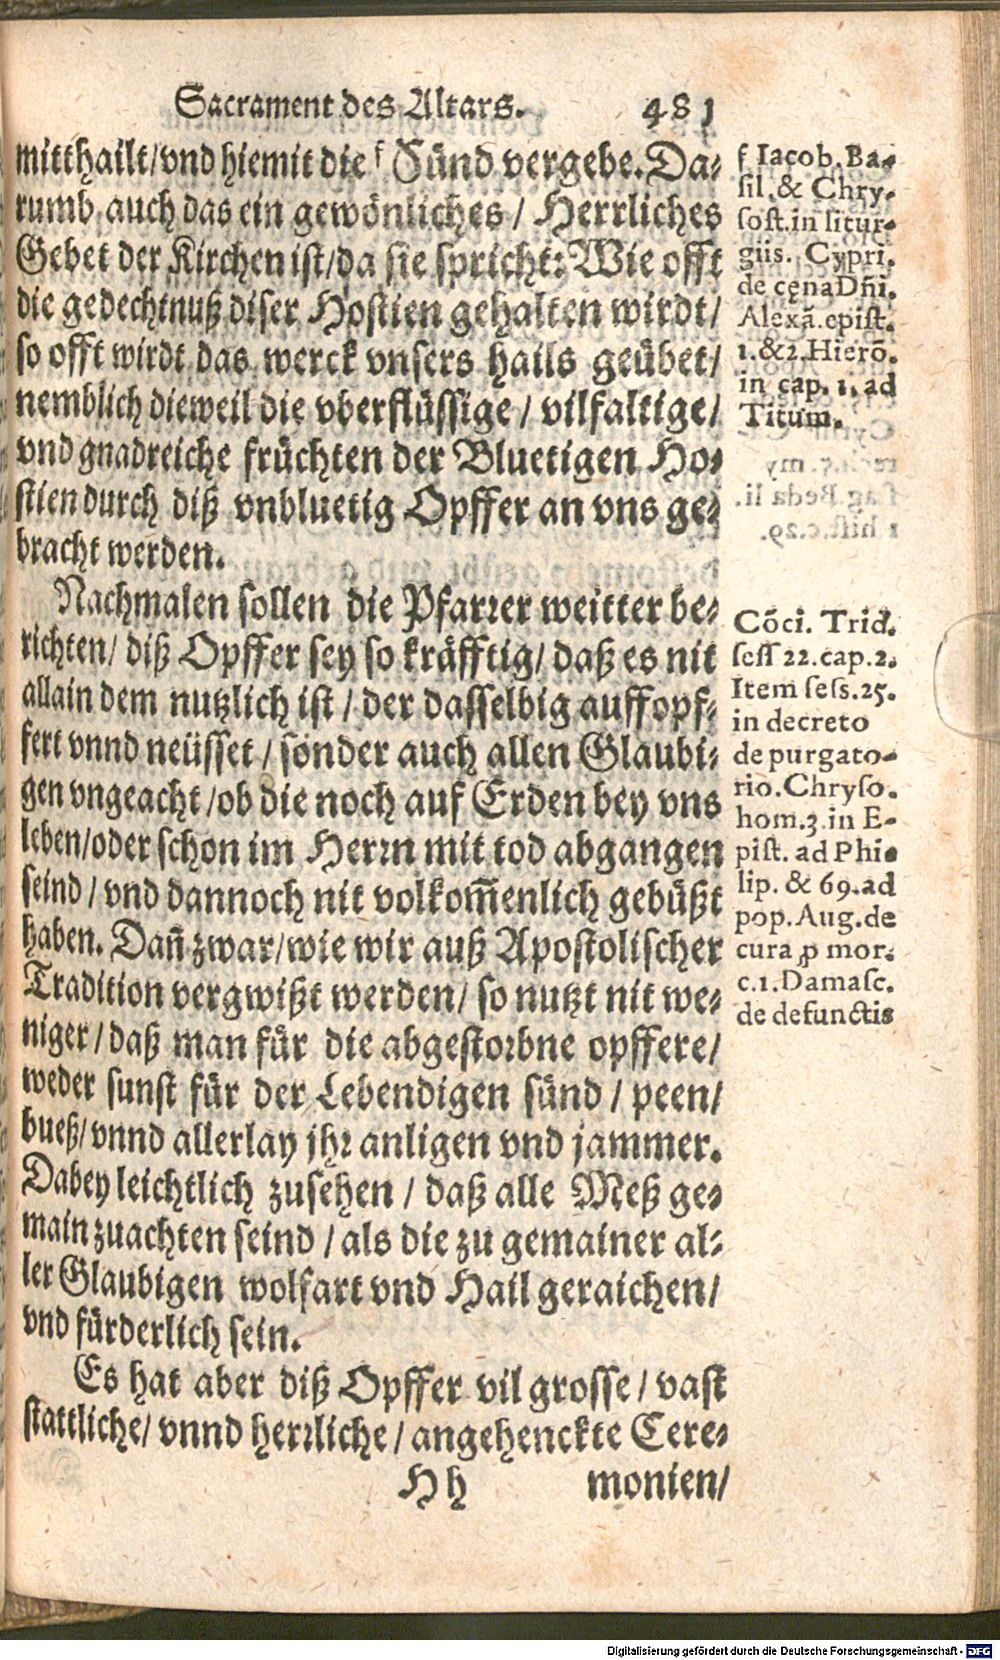 Sacrament des Altars. 481
mitthailt/vnd hiemit die f Sünd vergebe. Da⸗
rumb auch das ein gewönliches / Herrliches
Gebet der Kirchen ist/da sie spricht: Wie offt
die gedechtnuß diser Hostien gehalten wirdt/
so offt wirdt das werck vnsers hails geübet/
nemblich dieweil die vberflüssige / vilfaltige/
vnd gnadreiche früchten der Bluetigen Ho⸗
stien durch diß vnbluetig Opffer an vns ge⸗
bracht werden.
Nachmalen sollen die Pfarrer weitter be⸗
richten/ diß Opffer sey so kräfftig/ daß es nit
allain dem nutzlich ist / der dasselbig auffopf⸗
fert vnnd neüsset / sonder auch allen Glaubi⸗
gen vngeacht /ob die noch auf Erden bey vns
leben/oder schon im Herrn mit tod abgangen
seind / vnd dannoch nit volkom̄enlich gebüßt
haben. Dan̄ zwar/wie wir auß Apostolischer
Tradition vergwißt werden/ so nutzt nit we⸗
niger / daß man für die abgestorbne opffere/
weder sunst für der Lebendigen sünd / peen/
bueß/ vnnd allerlay jhr anligen vnd jammer.
Dabey leichtlich zusehen / daß alle Meß ge⸗
main zuachten seind / als die zu gemainer al⸗
ler Glaubigen wolfart vnd Hail geraichen/
vnd fürderlich sein.
Es hat aber diß Opffer vil grosse / vast
stattliche/ vnnd herrliche / angehenckte Cere⸗
Hh monien/
f Iacob. Ba-
sil. & Chry-
sost. in litur-
giis. Cypri.
de cęna Dn̄i.
Alexā. epist.
1. & 2. Hierō.
in cap. 1. ad
Titum.
Cōci. Trid.
sess 22. cap. 2.
Item sess. 25.
in decreto
de purgato-
rio. Chryso.
hom. 3. in E-
pist. ad Phi-
lip. & 69. ad
pop. Aug. de
cura ꝓ mor.
c. 1. Damasc.
de defunctis
Digitalisierung gefördert durch die Deutsche Forschungsgemeinschaft - DFG